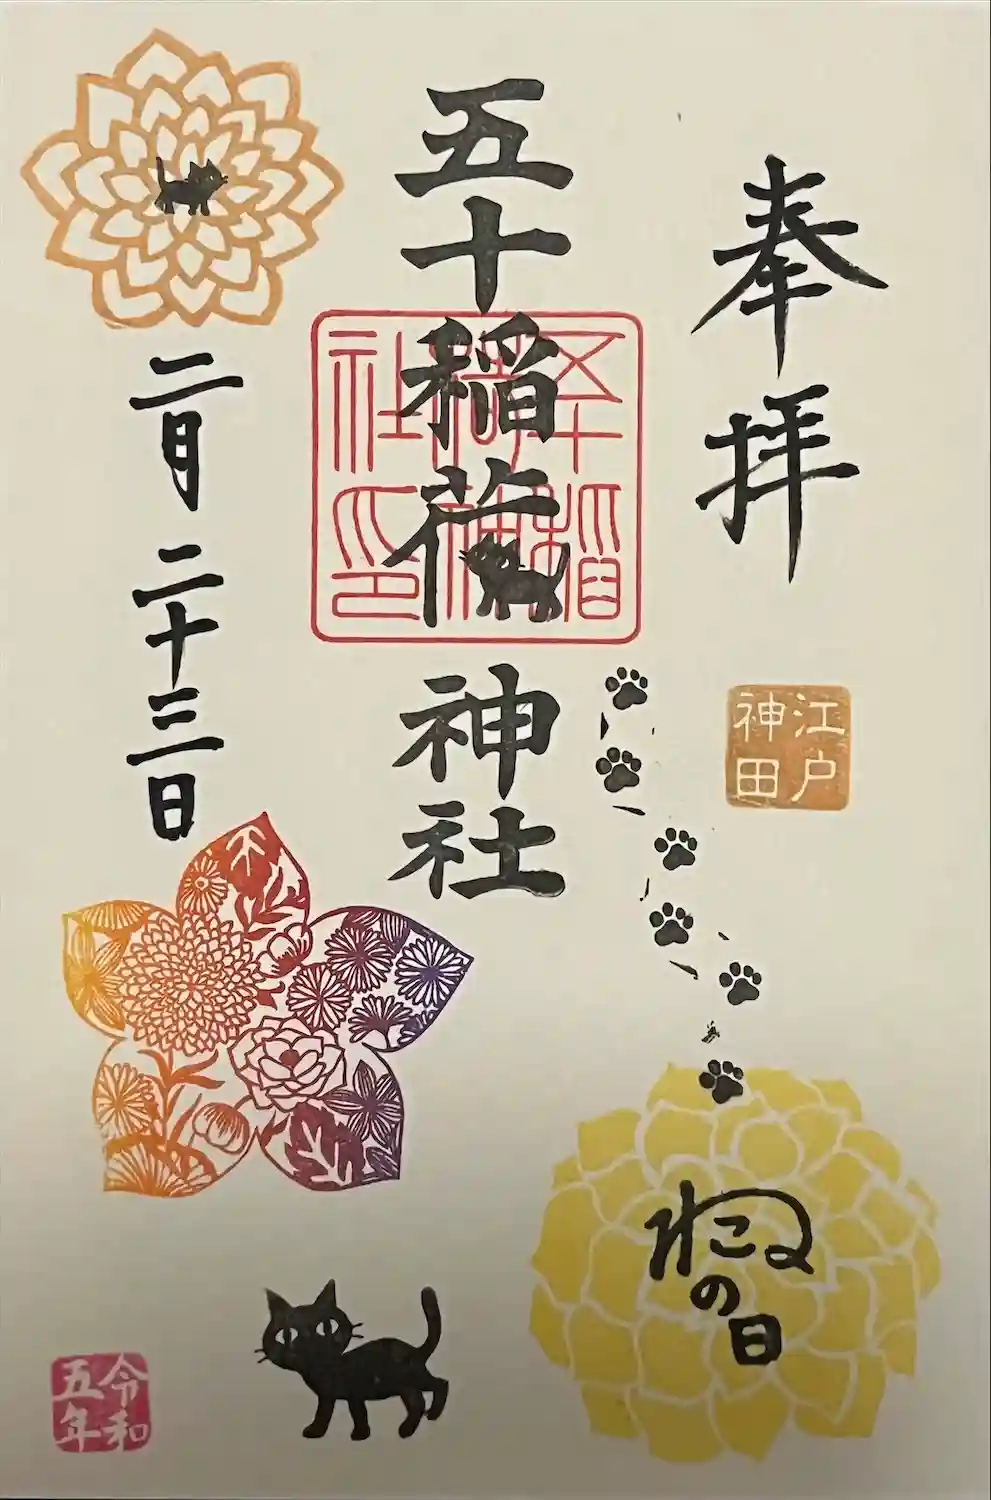 奉拝
江戸
神田
五十稲荷神社
五十稲
荷神
社印
二月二十三日
ねこの日
令和
五年